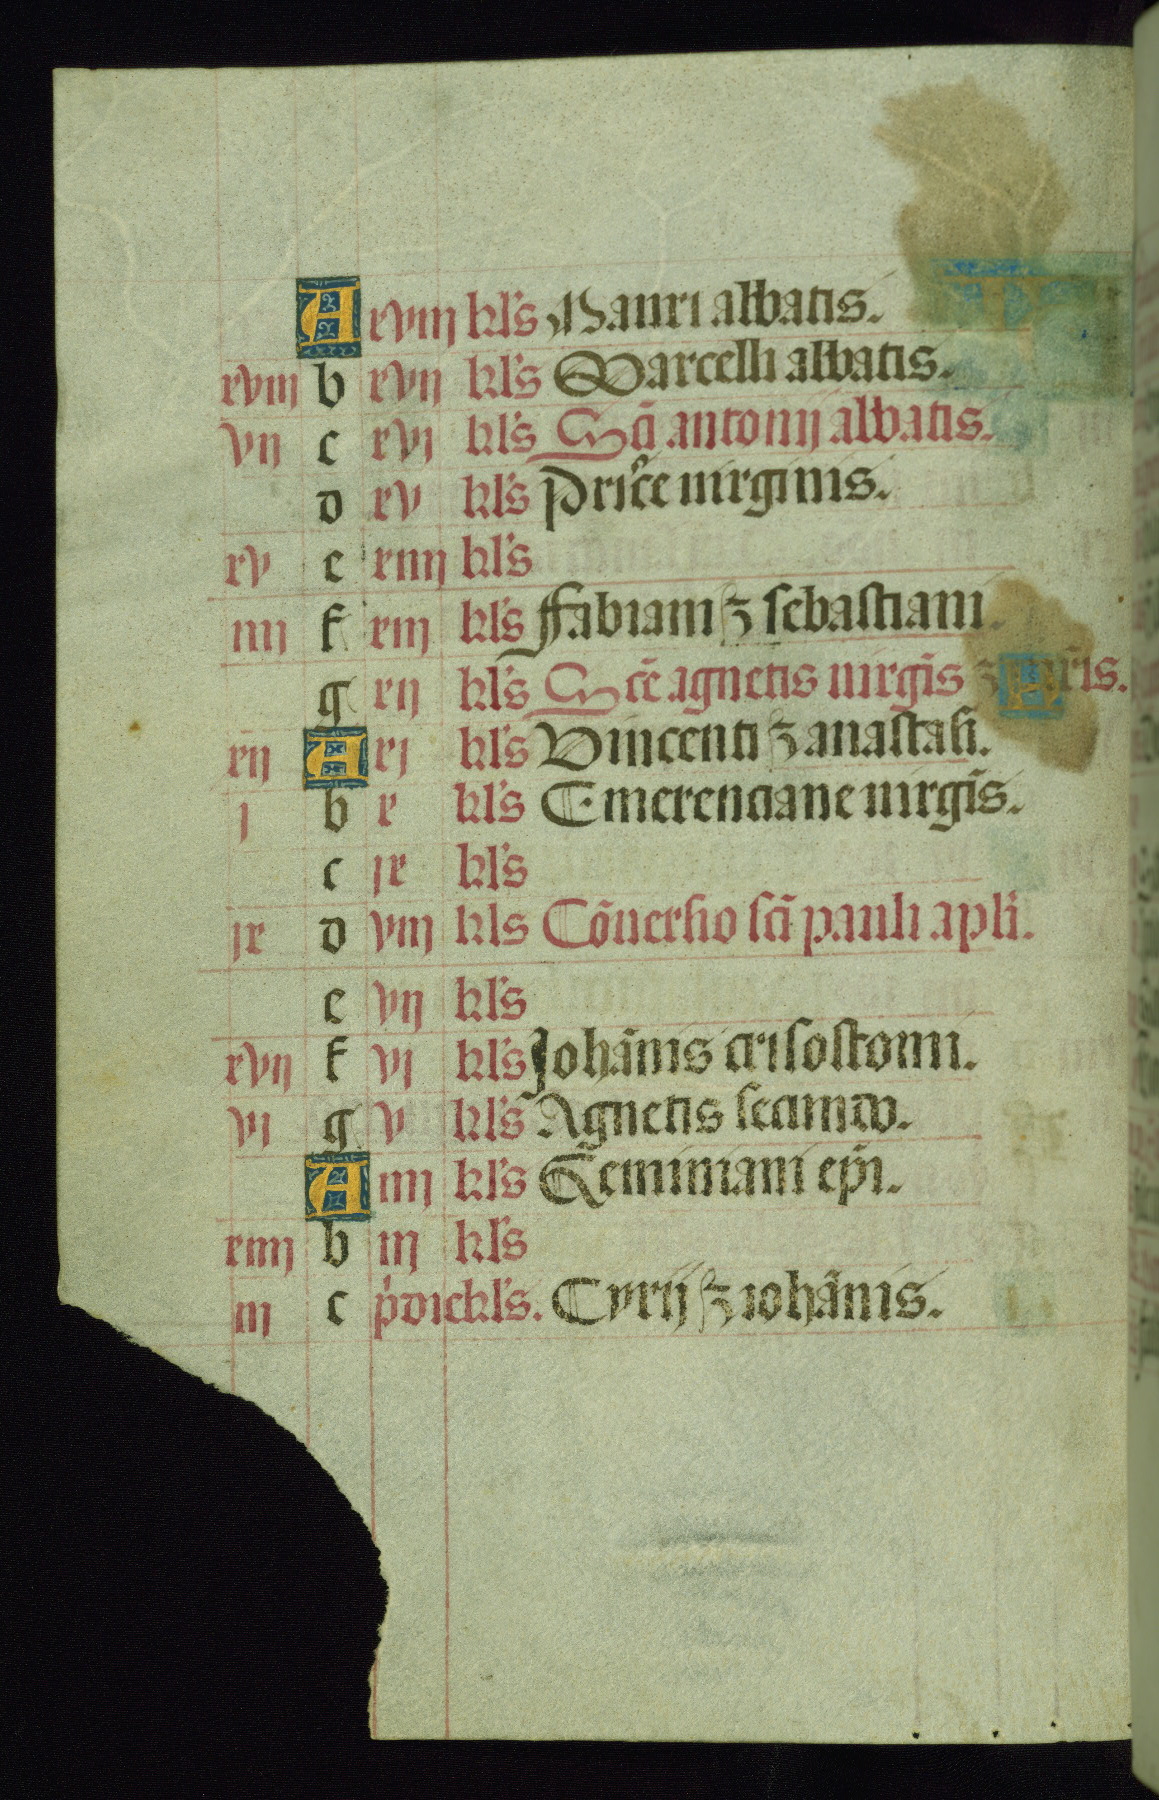 A xviii kl's Mauri abbatis.
xviii b xvii kl's Marcelli abbatis.
vii c xvi kl's Scī antonij abbatis.
d xv kl's Prisce uirginis.
xv e xiiii kl's
iiii f xiii kl's Fabiani ⁊ sebastiani.
g xii kl's Scē agnetis uirgīs ⁊
xii A xi kl's Vincenti ⁊ anastasii.
i b x kl's Emerenciane uirgīs.
c ix kl's
ix d viii kls Cōuersio scī pauli apli.
e vii kl's
xvii f vi kl's Johānis crisostomi.
vi g v kl's Agnetis secundo.
A iiii kl's Geminiani epī.
xiiii b iii kl's
iii c pdie kl's. Cyrij ⁊ iohānis.